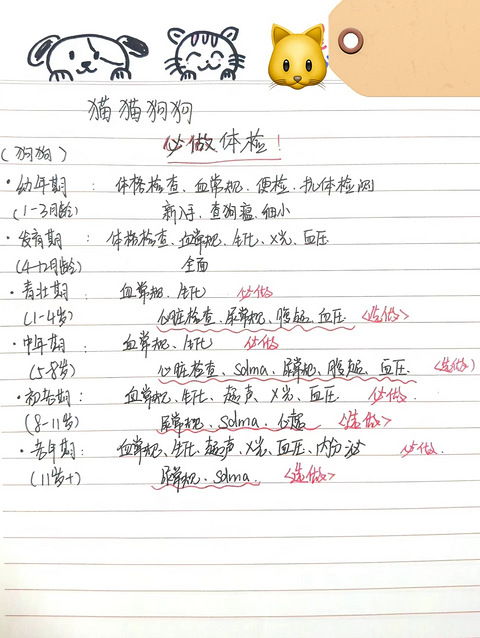 猫猫狗狗
必做体检！
（狗狗）
·幼年期：体格检查、血常规、便检、抗体检测
（1-3月龄） 新入手、查狗瘟、细小
·发育期：体格检查、血常规、生化、X光、血压
（4-12月龄） 全面
·青壮期：血常规、生化 必做
（1-4岁） 心脏检查、尿常规、腹超、血压 <选做>
·中年期：血常规、生化 必做
（5-8岁） 心脏检查、Sdma、尿常规、腹超、血压 <选做>
·初老期：血常规、生化、超声、X光、血压 必做
（8-11岁） 尿常规、Sdma、心超 <选做>
·老年期：血常规、生化、超声、X光、血压、内分泌 必做.
（11岁+） 尿常规、Sdma. <选做>